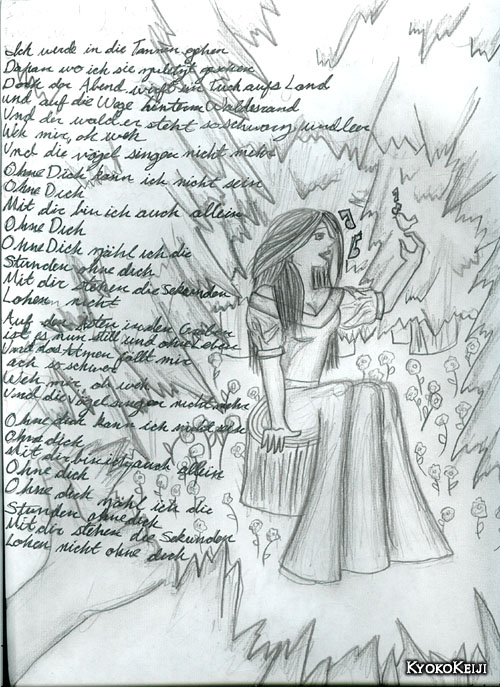 Ich werde in die Tannen gehen
Dahan wo ich sie zuletzt gesehen
Doch der Abend wirft ein Tuch aufs Land
und auf die Wege hinterm Waldesrand
Und der wald er steht so schwarz und leer
Weh mir, oh weh
Und die vögel singen nicht mehr
Ohne Dich kann ich nicht sein
Ohne Dich
Mit dir bin ich auch allein
Ohne Dich
Ohne Dich zähl ich die
Stunden ohne dich
Mit dir stehen die Sekunden
Lohen nicht
Auf den Ästen in den Gräben
ist es nun still und ohne Leben
Und das Atmen fällt mir
ach so schwer
Weh mir, oh weh
Und die Vögel singen nicht mehr
Ohne dich kann ich nicht sein
Ohne dich
Mit dir bin ich auch allein
Ohne dich
Ohne dich zähl ich die
Stunden ohne dich
Mit dir stehen die Sekunden
Lohen nicht ohne dich
KyokoKeiji